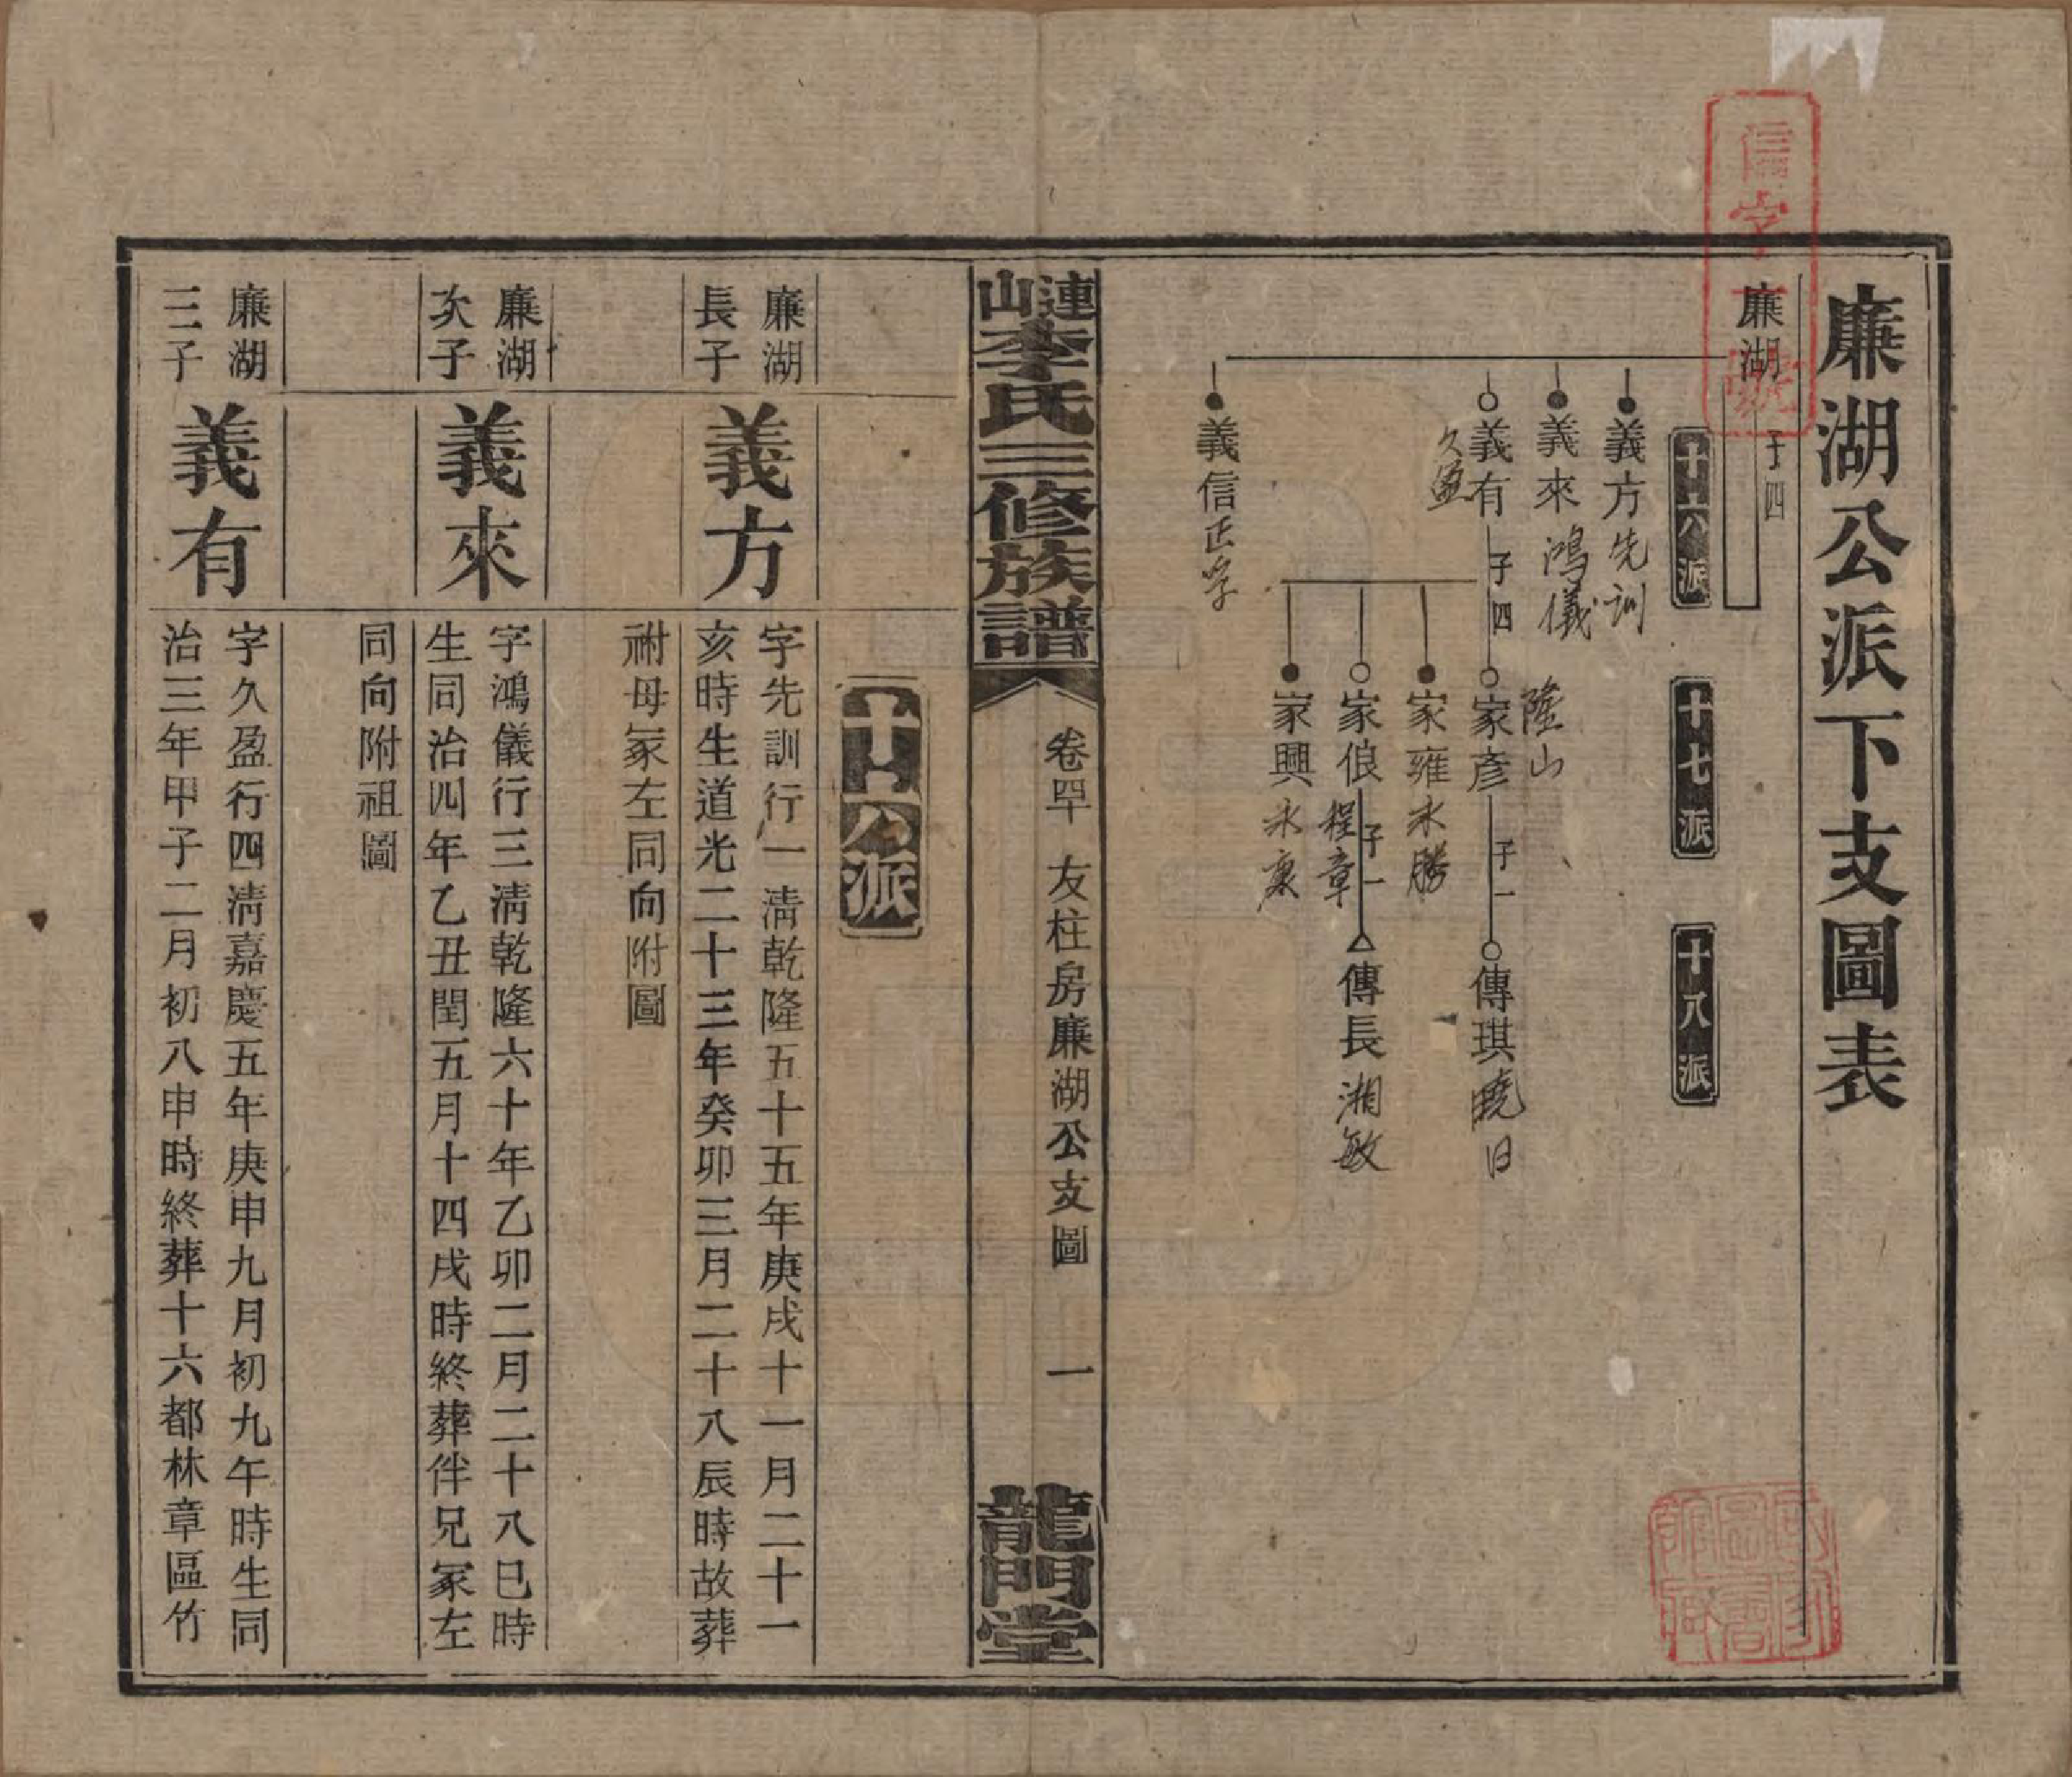 廉湖公派下支圖表
廉湖 子四
信字 號
十六派
十七派
十八派
義方 先訓
義來 鴻儀
義有 久盈 子四
義信 正字
家彥 隆山 子一
家雍 永勝
家俍 程章 子一
家興 永康
傳琪 曉日
傳長 湘敏
連山李氏三修族譜
卷四 友柱房廉湖公支圖 一
龍門堂
十六派
廉湖長子
義方
字先訓行一淸乾隆五十五年庚戌十一月二十一
亥時生道光二十三年癸卯三月二十八辰時故葬
祔母冢左同向附圖
廉湖次子
義來
字鴻儀行三淸乾隆六十年乙卯二月二十八巳時
生同治四年乙丑閏五月十四戌時終葬伴兄冢左
同向附祖圖
廉湖三子
義有
字久盈行四淸嘉慶五年庚申九月初九午時生同
治三年甲子二月初八申時終葬十六都林章區竹